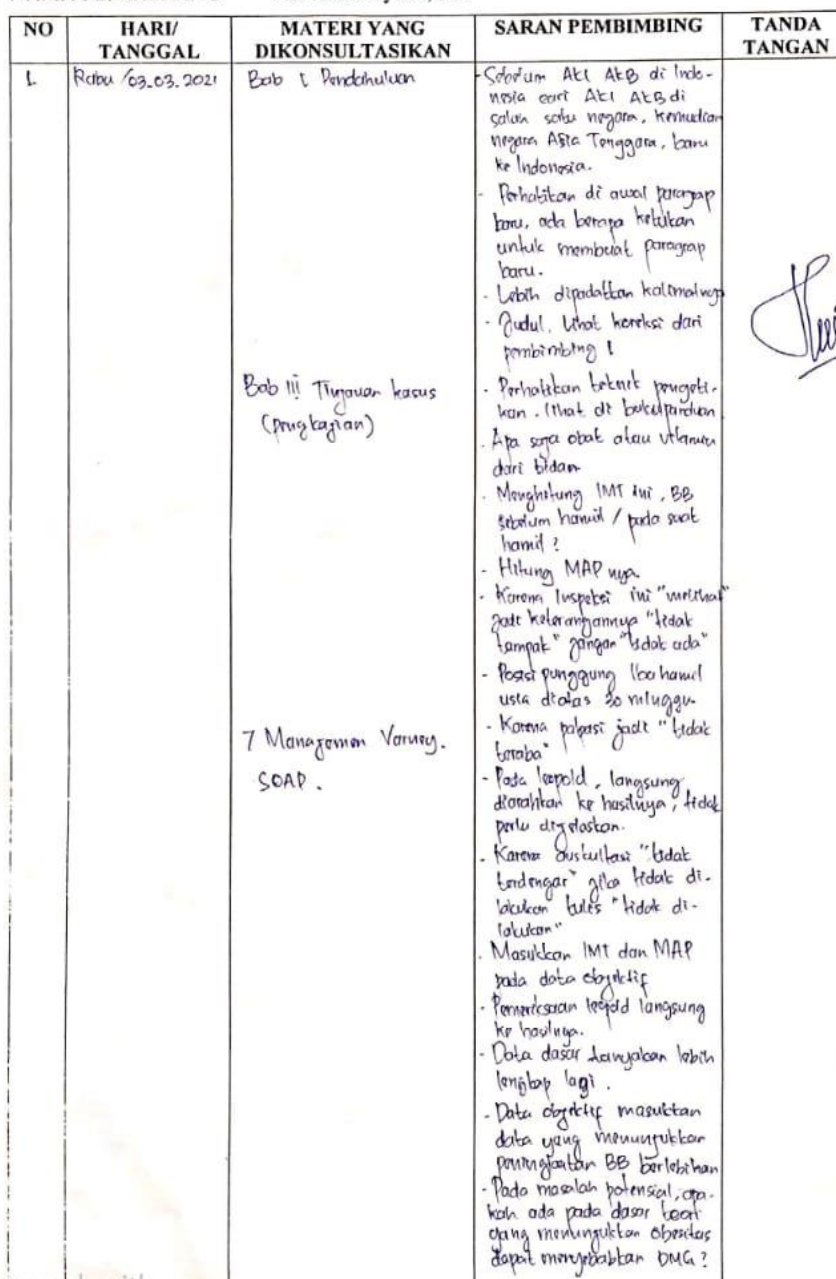 NO
HARI/
TANGGAL
MATERI YANG
DIKONSULTASIKAN
SARAN PEMBIMBING
TANDA
TANGAN
1.
Rabu /03.03.2021
Bab I Pendahuluan
- Sebelum AKI AKB di Indo-
nesia cari AKI AKB di
salah satu negara, kemudian
negara Asia Tenggara, baru
ke Indonesia.
- Perhatikan di awal paragrap
baru, ada berapa ketukan
untuk membuat paragrap
baru.
- Lebih dipadatkan kalimatnya
- Judul, lihat koreksi dari
pembimbing 1
Bab III Tinjauan kasus
(pengkajian)
- Perhatikan teknik pengeti-
kan. lihat di buku panduan
- Apa saja obat atau vitamin
dari bidan
- Menghitung IMT ini, BB
sebelum hamil / pada saat
hamil?
- Hitung MAP nya.
- Karena Inspeksi ini "melihat"
jadi keterangannya "tidak
tampak" jangan "tidak ada"
- Posisi punggung ibu hamil
usia diatas 30 minggu.
7 Manajemen Varney.
SOAP.
- Karena palpasi jadi "tidak
teraba"
- Pada leopold, langsung
diarahkan ke hasilnya, tidak
perlu dijelaskan.
- Karena auskultasi "tidak
terdengar" jika tidak di-
lakukan tulis "tidak di-
lakukan"
- Masukkan IMT dan MAP
pada data objektif
- Pemeriksaan leopold langsung
ke hasilnya.
- Data dasar tanyakan lebih
lengkap lagi.
- Data objektif masukkan
data yang menunjukkan
peningkatan BB berlebihan
- Pada masalah potensial, apa-
kah ada pada dasar teori
yang menunjukkan obesitas
dapat menyebabkan DMG?